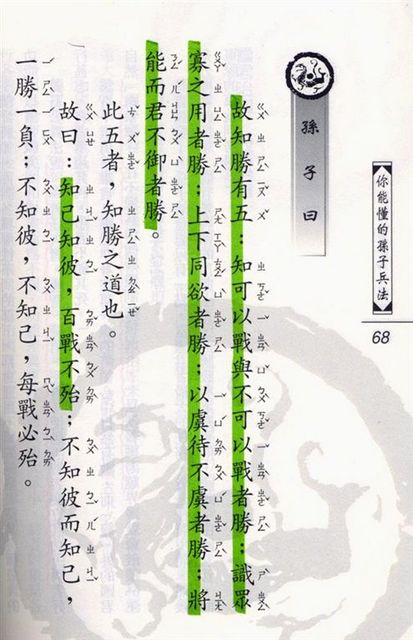 你能懂的孫子兵法
68
孫子曰
故知勝有五：知可以戰與不可以戰者勝：識眾
寡之用者勝：上下同欲者勝：以虞待不虞者勝：將
能而君不御者勝。
此五者，知勝之道也。
故曰：知己知彼，百戰不殆：不知彼而知己，
一勝一負：不知彼，不知己，每戰必殆。